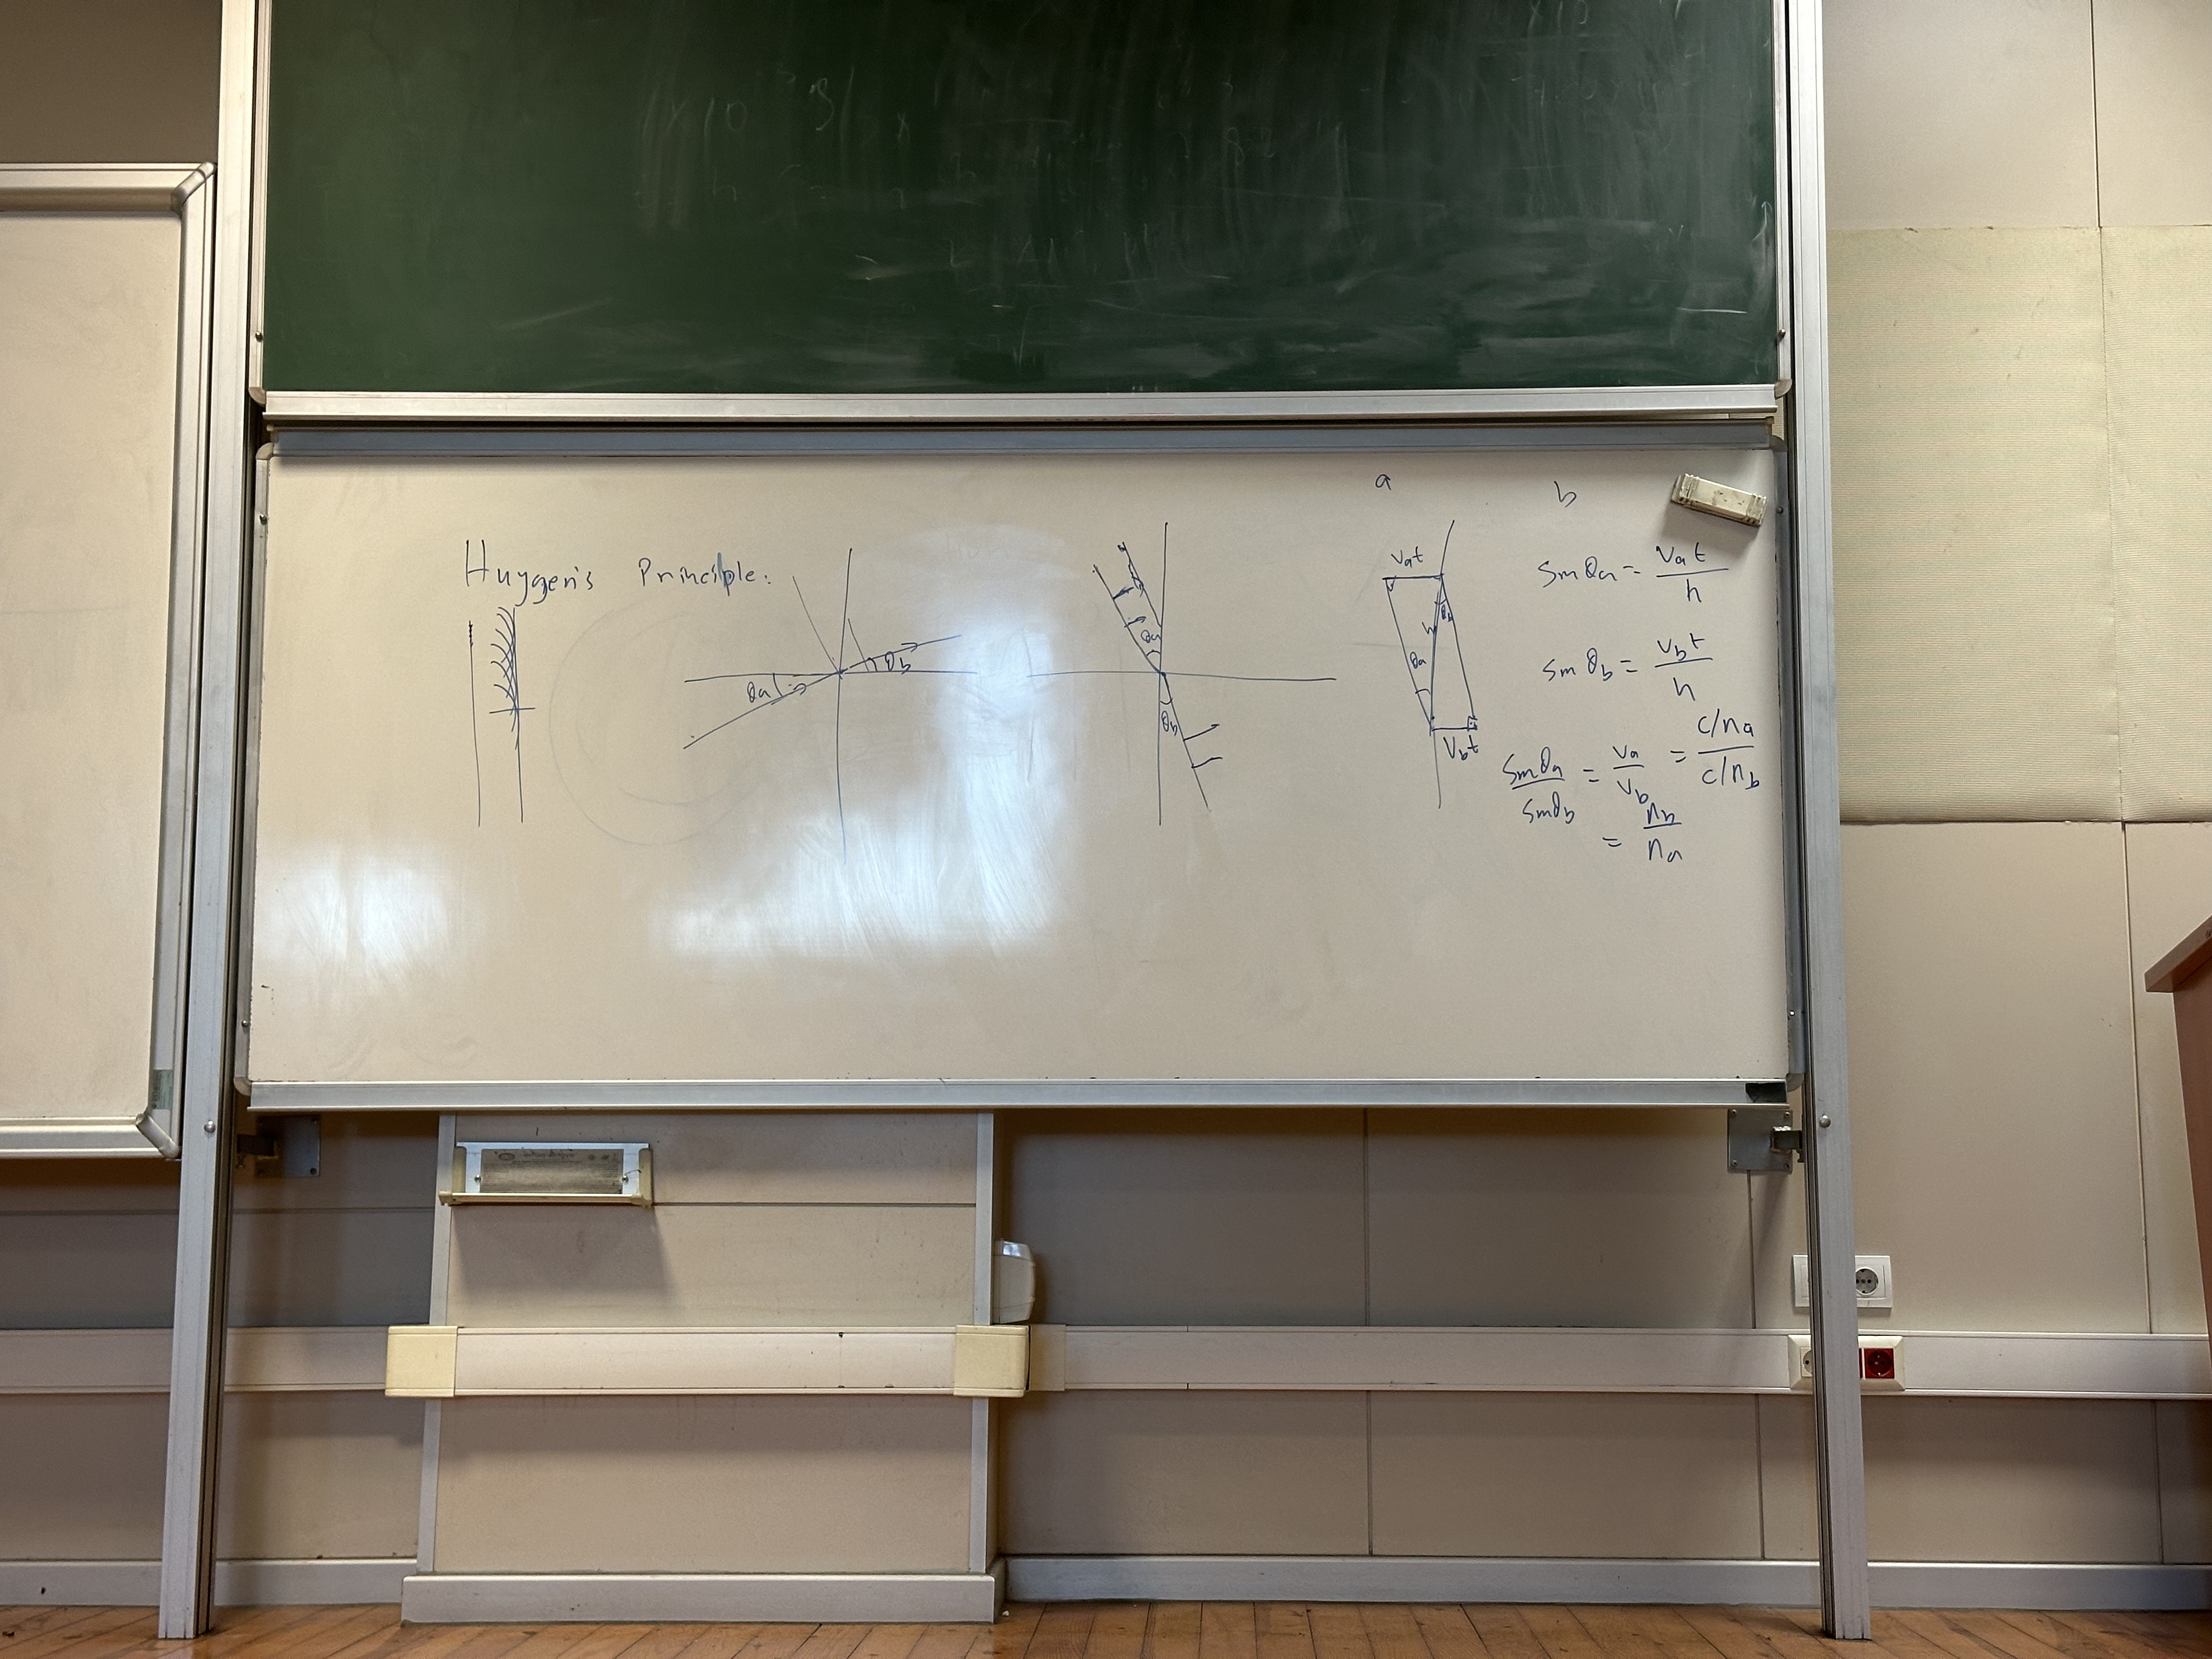 Huygen's Principle:
θa
θb
θa
θb
a
b
vat
h
θb
θa
vbt
sin θa = vat / h
sin θb = vbt / h
sin θa / sin θb = va / vb = c/na / c/nb
= nb / na